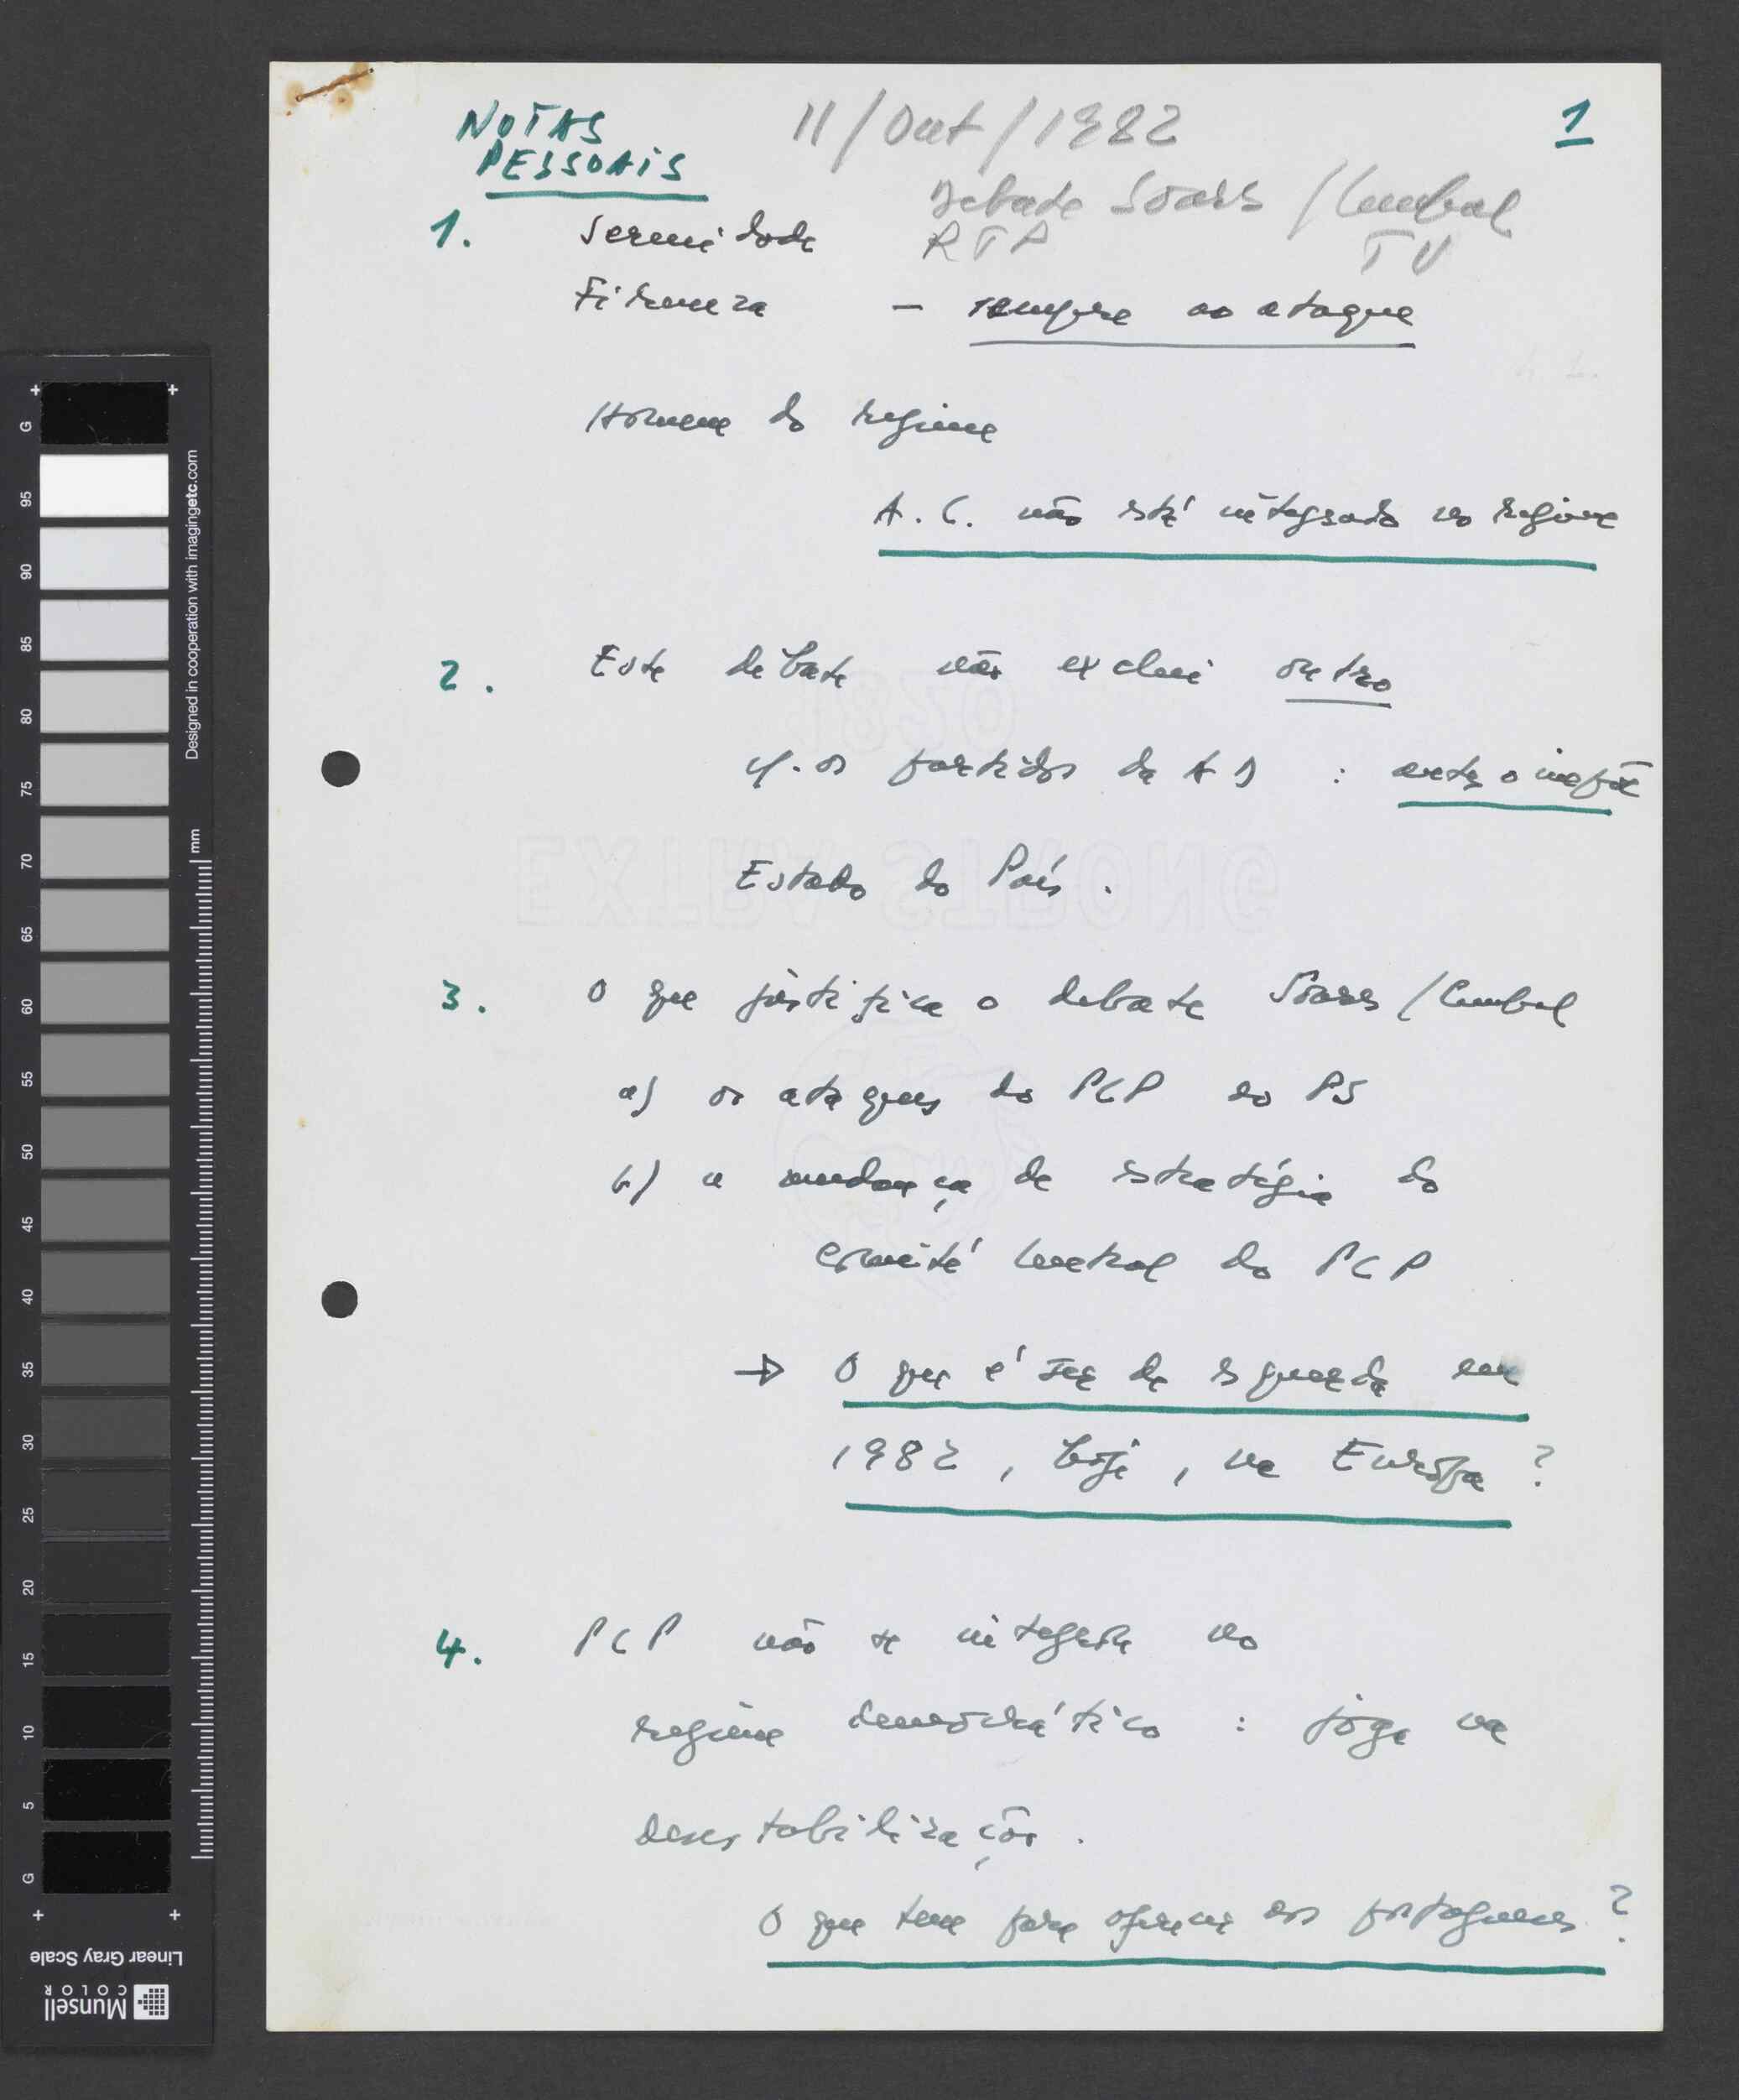 NOTAS
PESSOAIS
11/Out/1982
1
Debate Soares / Cunhal
RTP TV
1. Serenidade
Firmeza - sempre ao ataque
Homem do regime
A. C. não está integrado no regime
2. Este debate não exclui outro
c/. os partidos da AD :
Estado do País.
3. O que justifica o debate Soares / Cunhal
a) os ataques do PCP ao PS
b) a mudança de estratégia do
comité Central do PCP
→ O que é ser de esquerda em
1982, hoje, na Europa ?
4. PCP não se integra no
regime democrático : joga na
desestabilização.
O que tem para oferecer aos portugueses ?
1830
EXTRA STRONG
G
95
90
85
80
75
70
65
60
55
50
45
40
35
30
25
20
15
10
5
G
Designed in cooperation with imagingetc.com
mm
Linear Gray Scale
Munsell
COLOR